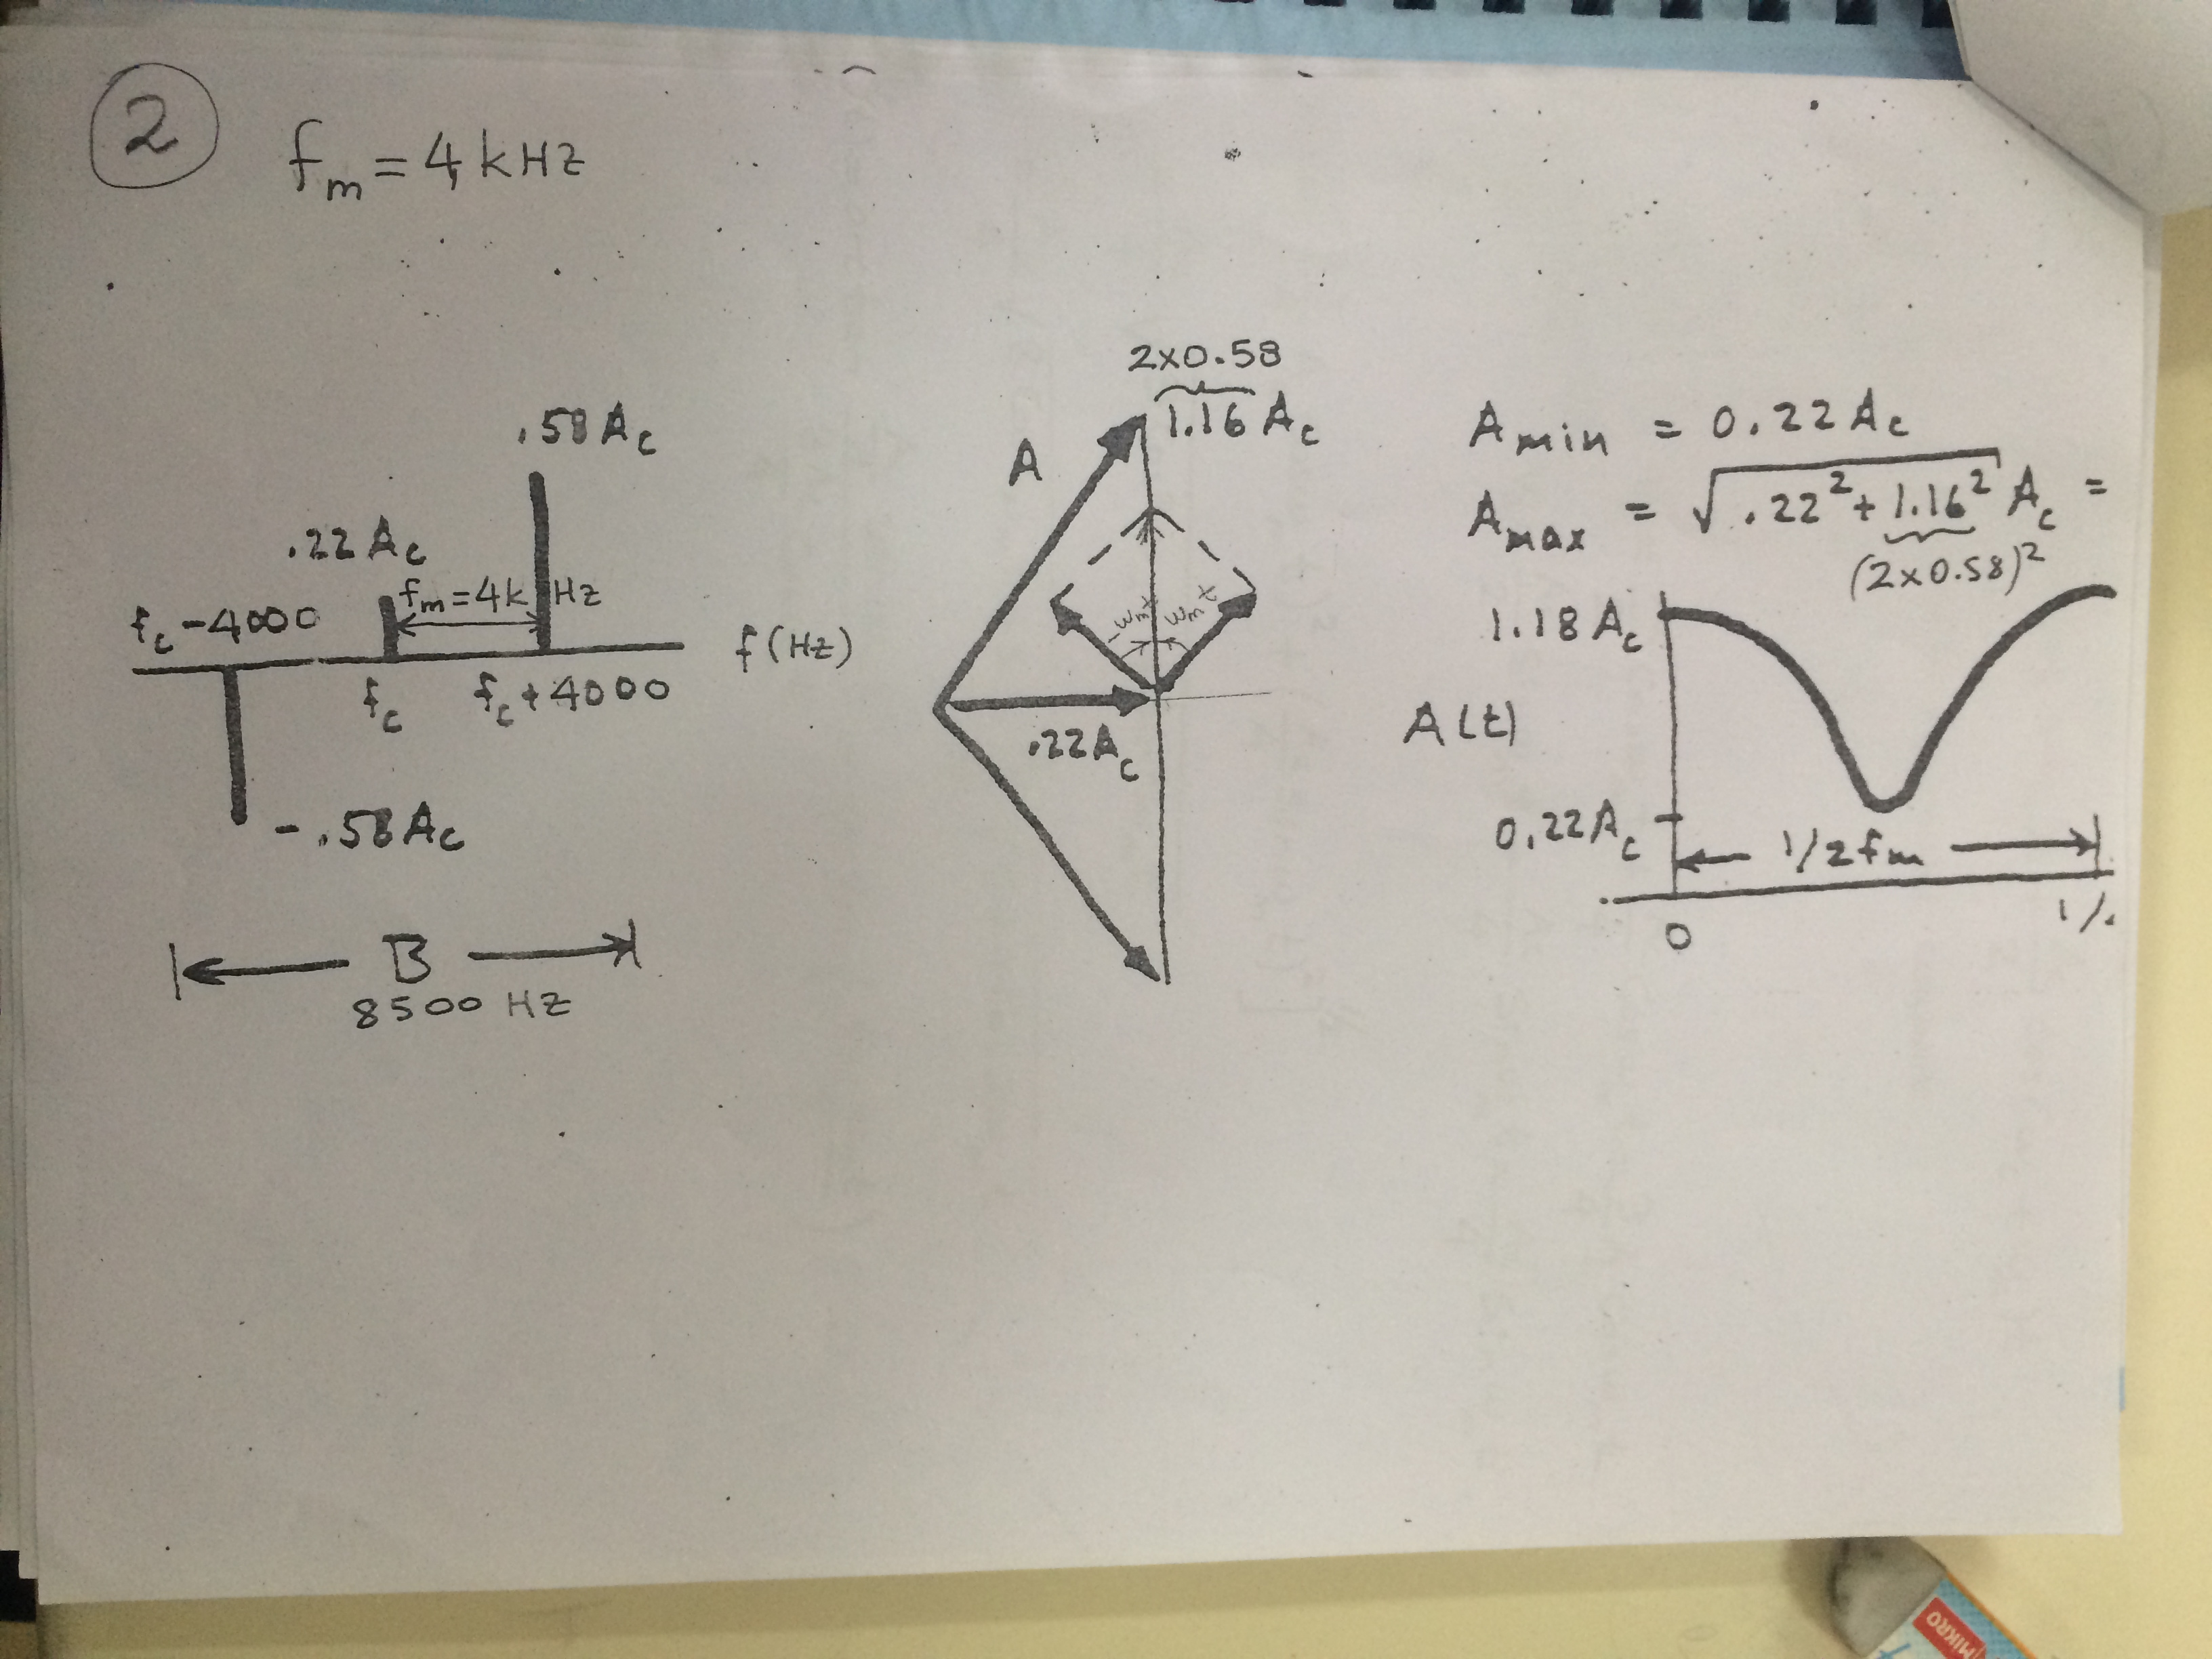 2
fm = 4 kHz
.58 Ac
.22 Ac
fm = 4k Hz
fc - 4000
f (Hz)
fc
fc + 4000
- .58 Ac
B
8500 Hz
2x0.58
1.16 Ac
A
ωmt
ωmt
.22 Ac
Amin = 0.22 Ac
Amax = √.22² + 1.16² Ac =
(2x0.58)²
1.18 Ac
A(t)
0.22 Ac
1/2fm
0
MIKRO